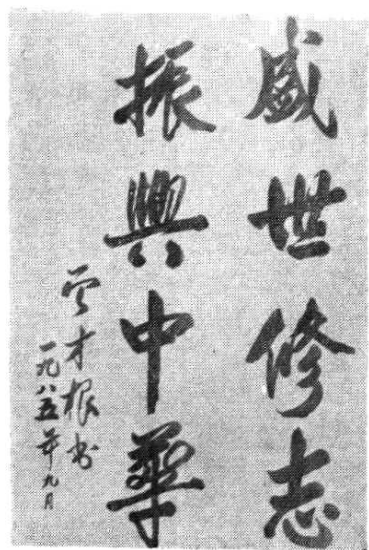 盛世修志
振興中華
才根书
一九八五年九月